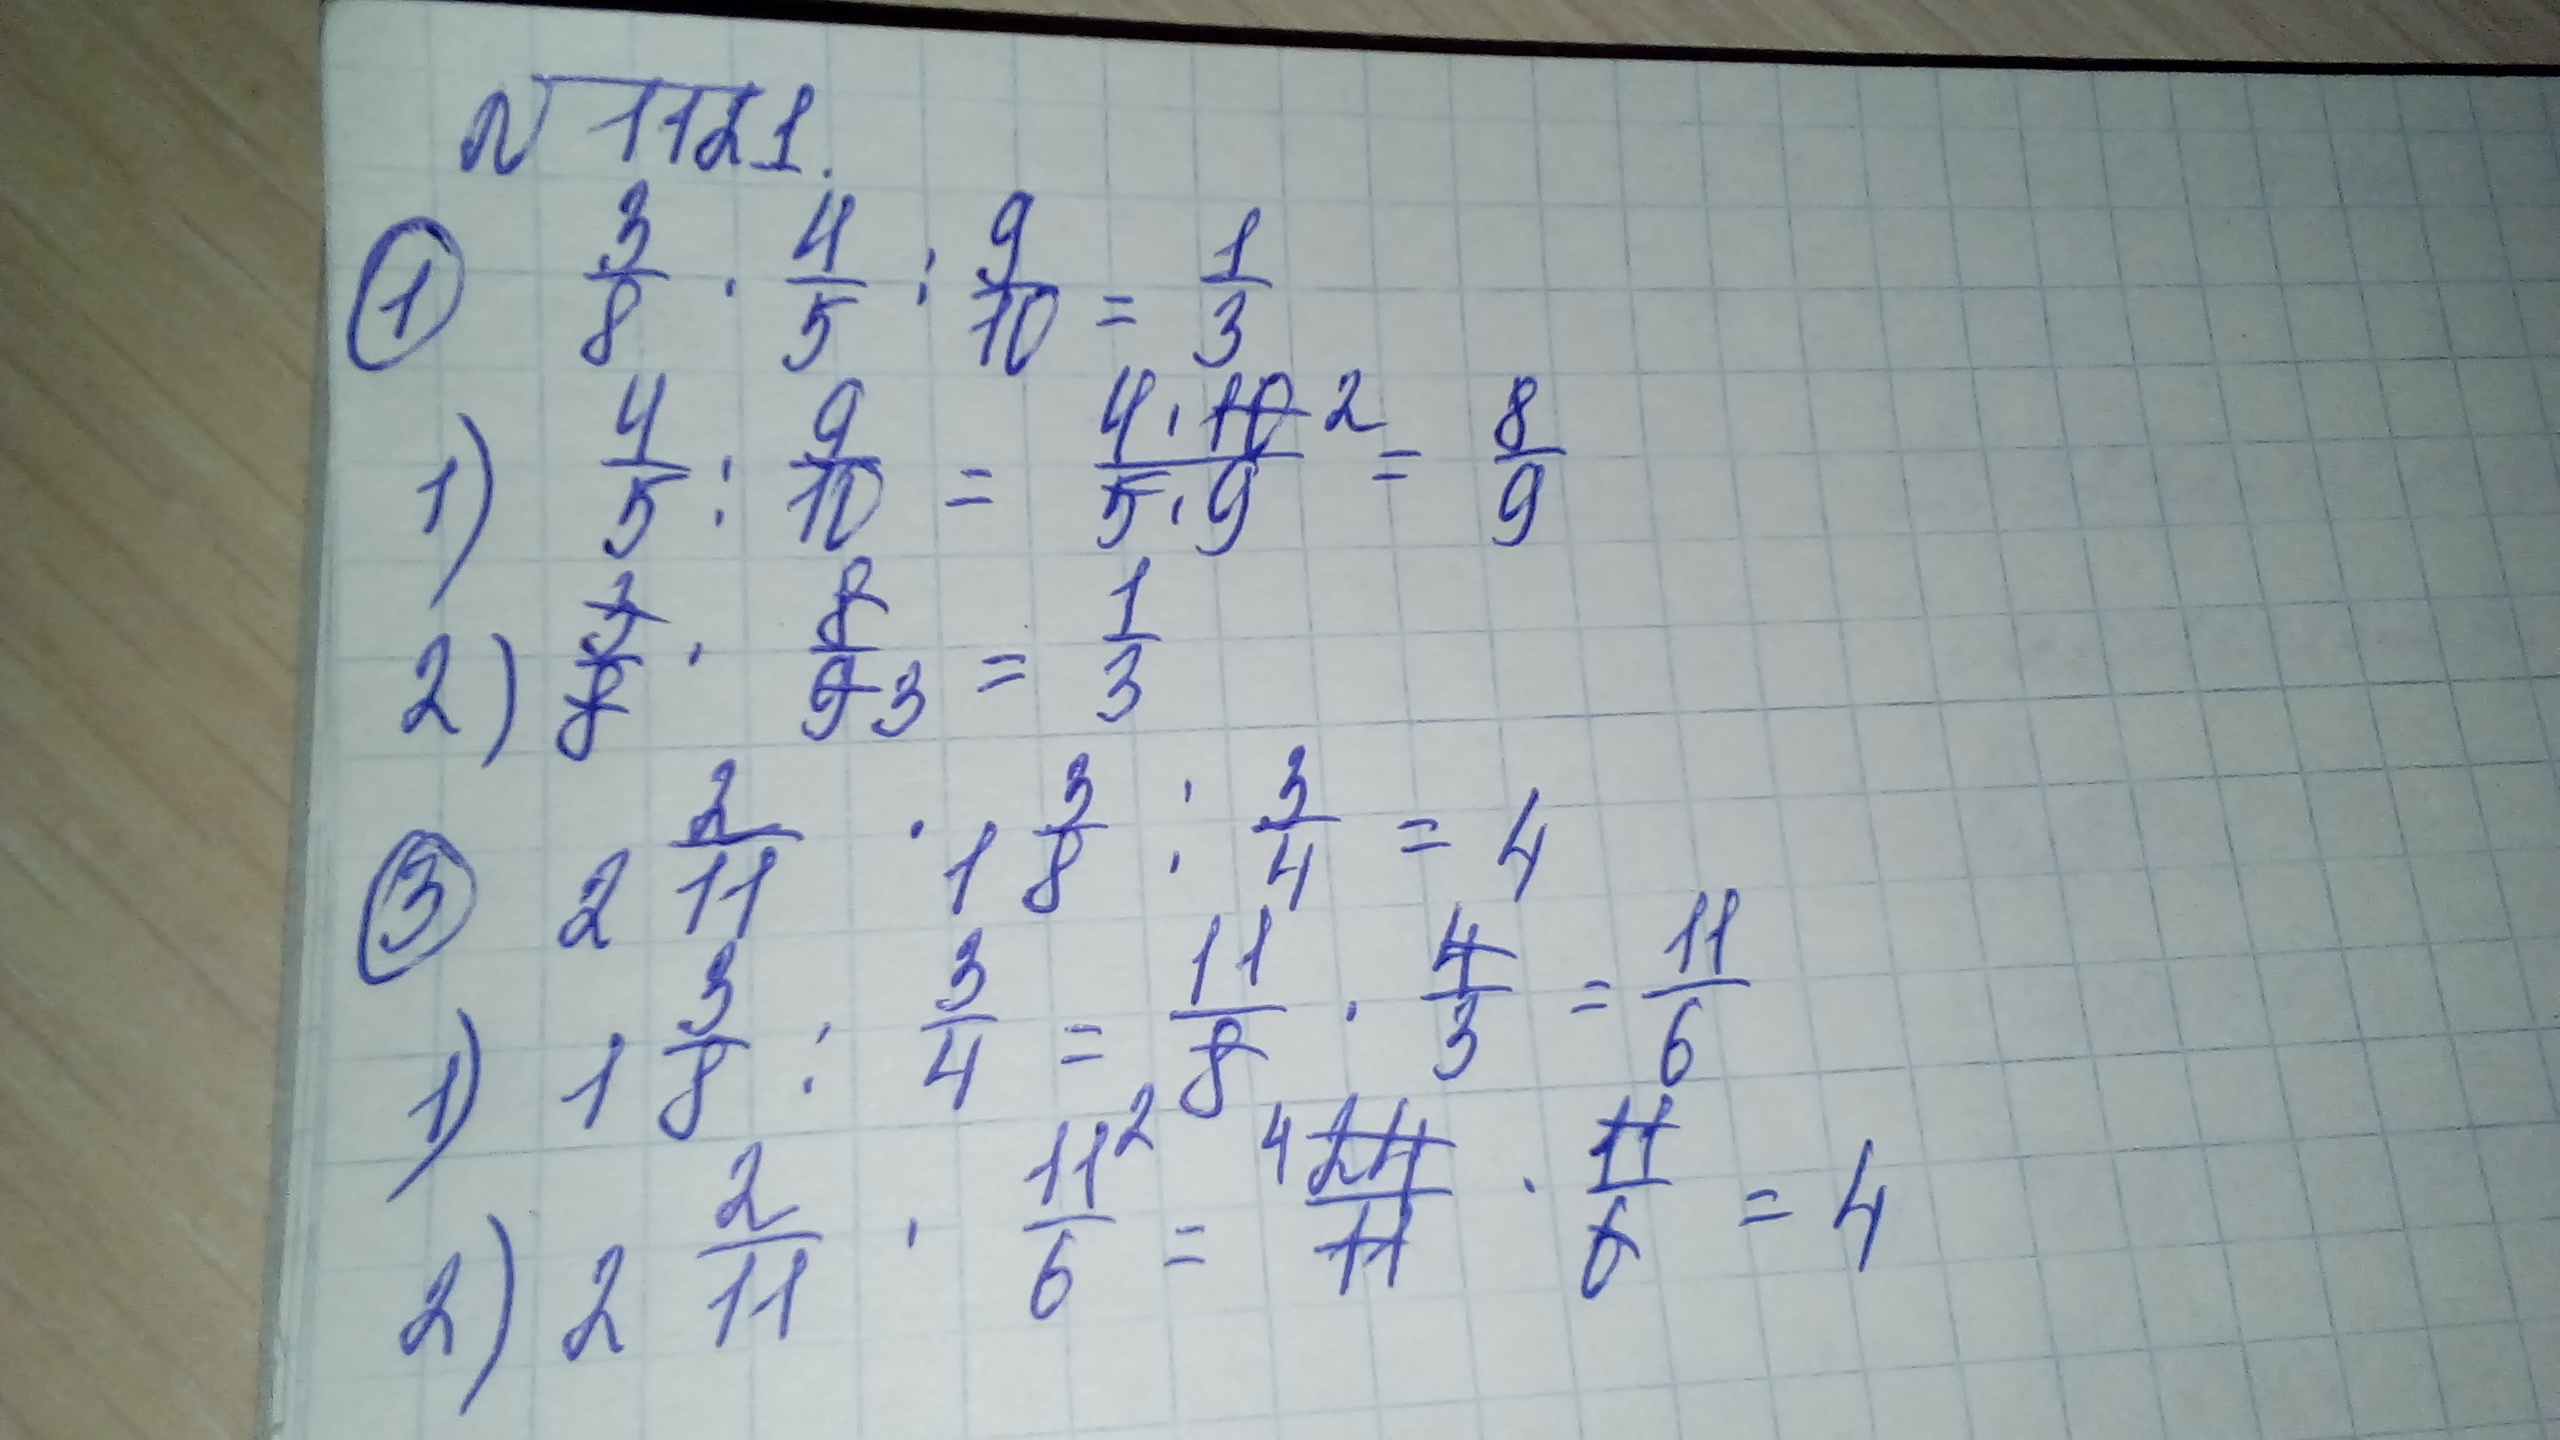 № 1121.
① 3/8 · 4/5 : 9/10 = 1/3
1) 4/5 : 9/10 = 4·10 2/5·9 = 8/9
2) 3/8 · 8/9 3 = 1/3
③ 2 2/11 · 1 3/8 : 3/4 = 4
1) 1 3/8 : 3/4 = 11/8 · 4/3 = 11/6
2) 2 2/11 · 11/6 = 4 24/11 · 11/6 = 4